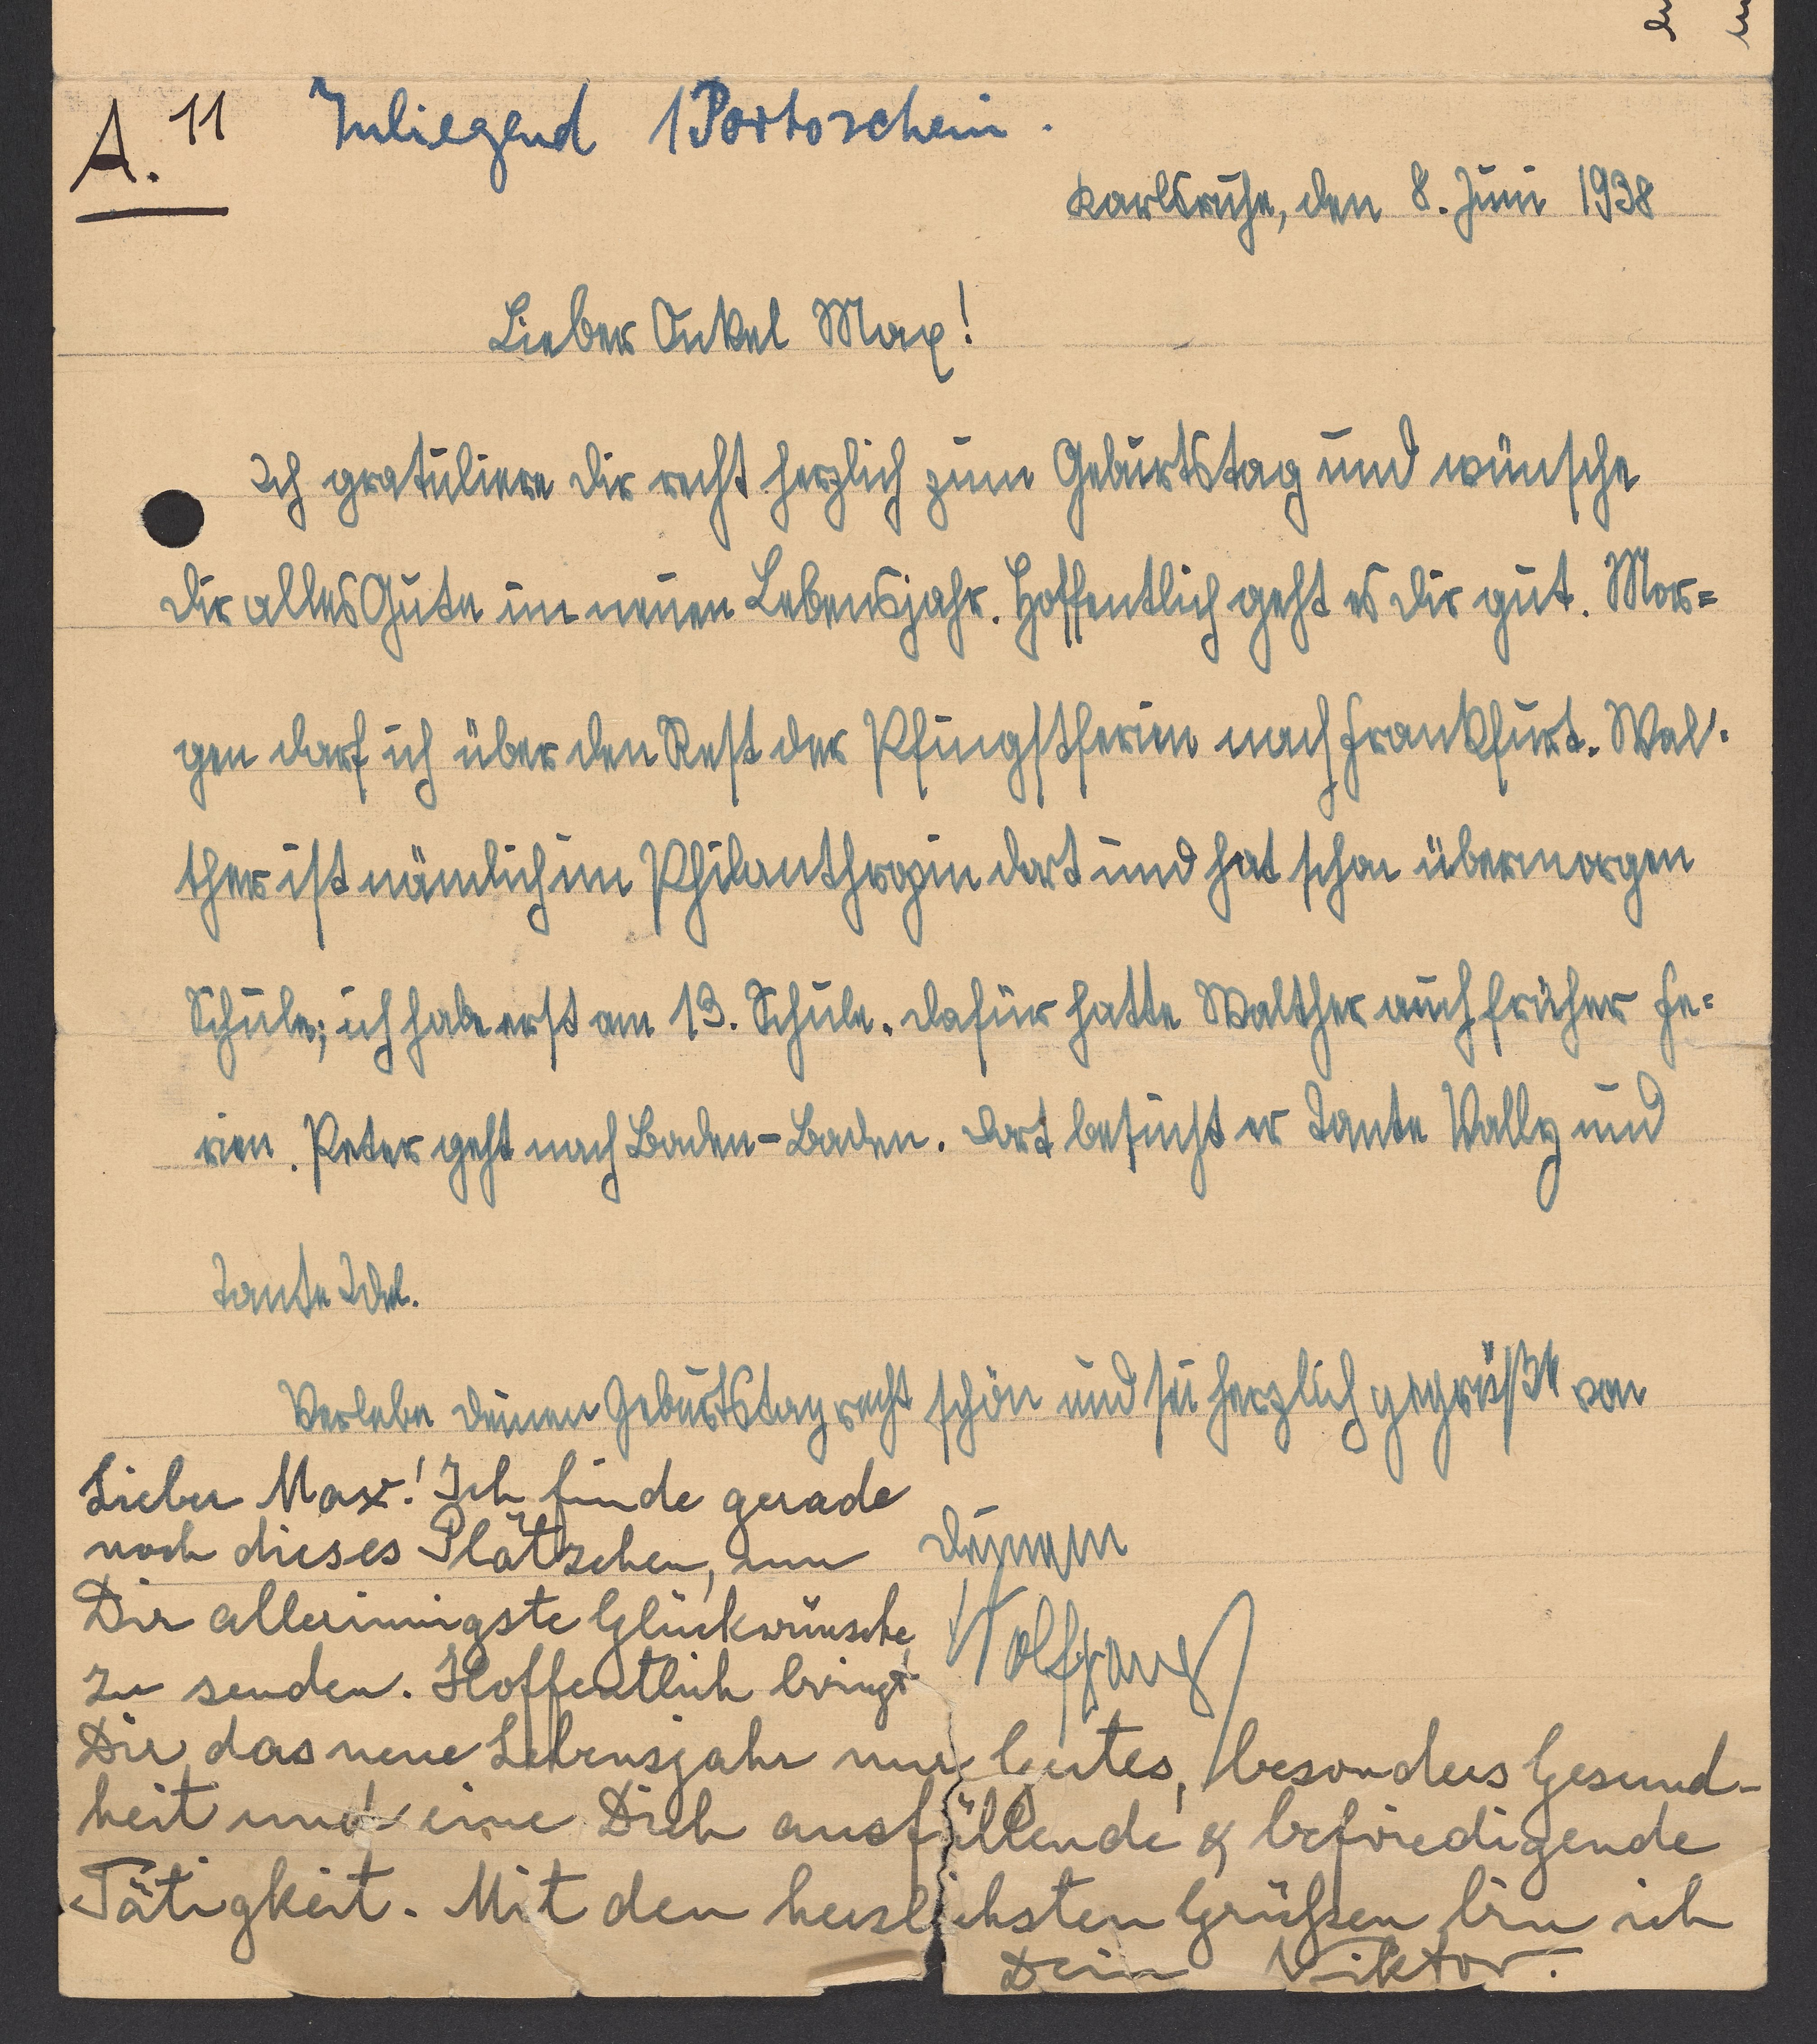 A. 11
Inliegend 1 Portoschein.
Karlsruhe, den 8. Juni 1938
Lieber Onkel Max!
Ich gratuliere dir recht herzlich zum Geburtstag und wünsche
dir alles Gute im neuen Lebensjahr. Hoffentlich geht es dir gut. Mor=
gen darf ich über den Rest der Pfingstferien nach Frankfurt. Wal-
ther ist nämlich im Philanthropin dort und hat schon übermorgen
Schule; ich habe erst am 13. Schule. Dafür hatte Walther auch früher Fe=
rien. Peter geht nach Baden-Baden. Dort besucht er Tante Wally und
Tante Idel.
Verlebe deinen Geburtstag recht schön und sei herzlich gegrüßt von
deinem
Wolfgang
Lieber Max! Ich finde gerade
noch dieses Plätzchen, um
Dir allerinnigste Glückwünsche
zu senden. Hoffentlich bringt
Dir das neue Lebensjahr nur Gutes, besonders Gesund-
heit und eine Dich ausfüllende & befriedigende
Tätigkeit. Mit den herzlichsten Grüßen bin ich
Dein Viktor.